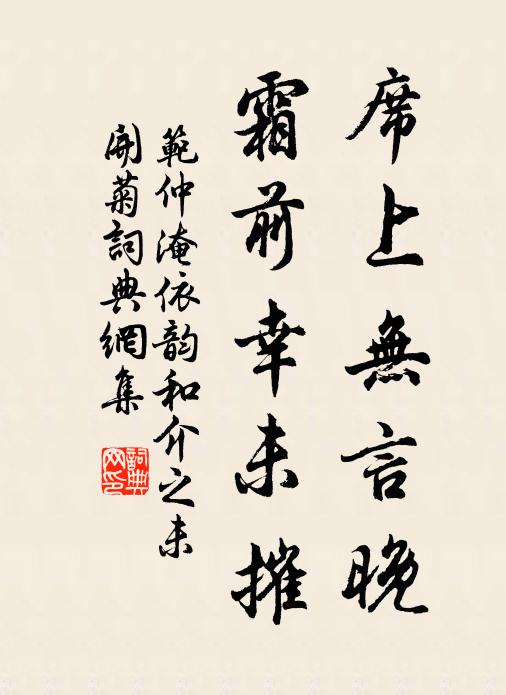 席上無言晚
霜前幸未摧
範仲淹依韵和介之未
開菊詞典網集
詞典
网印